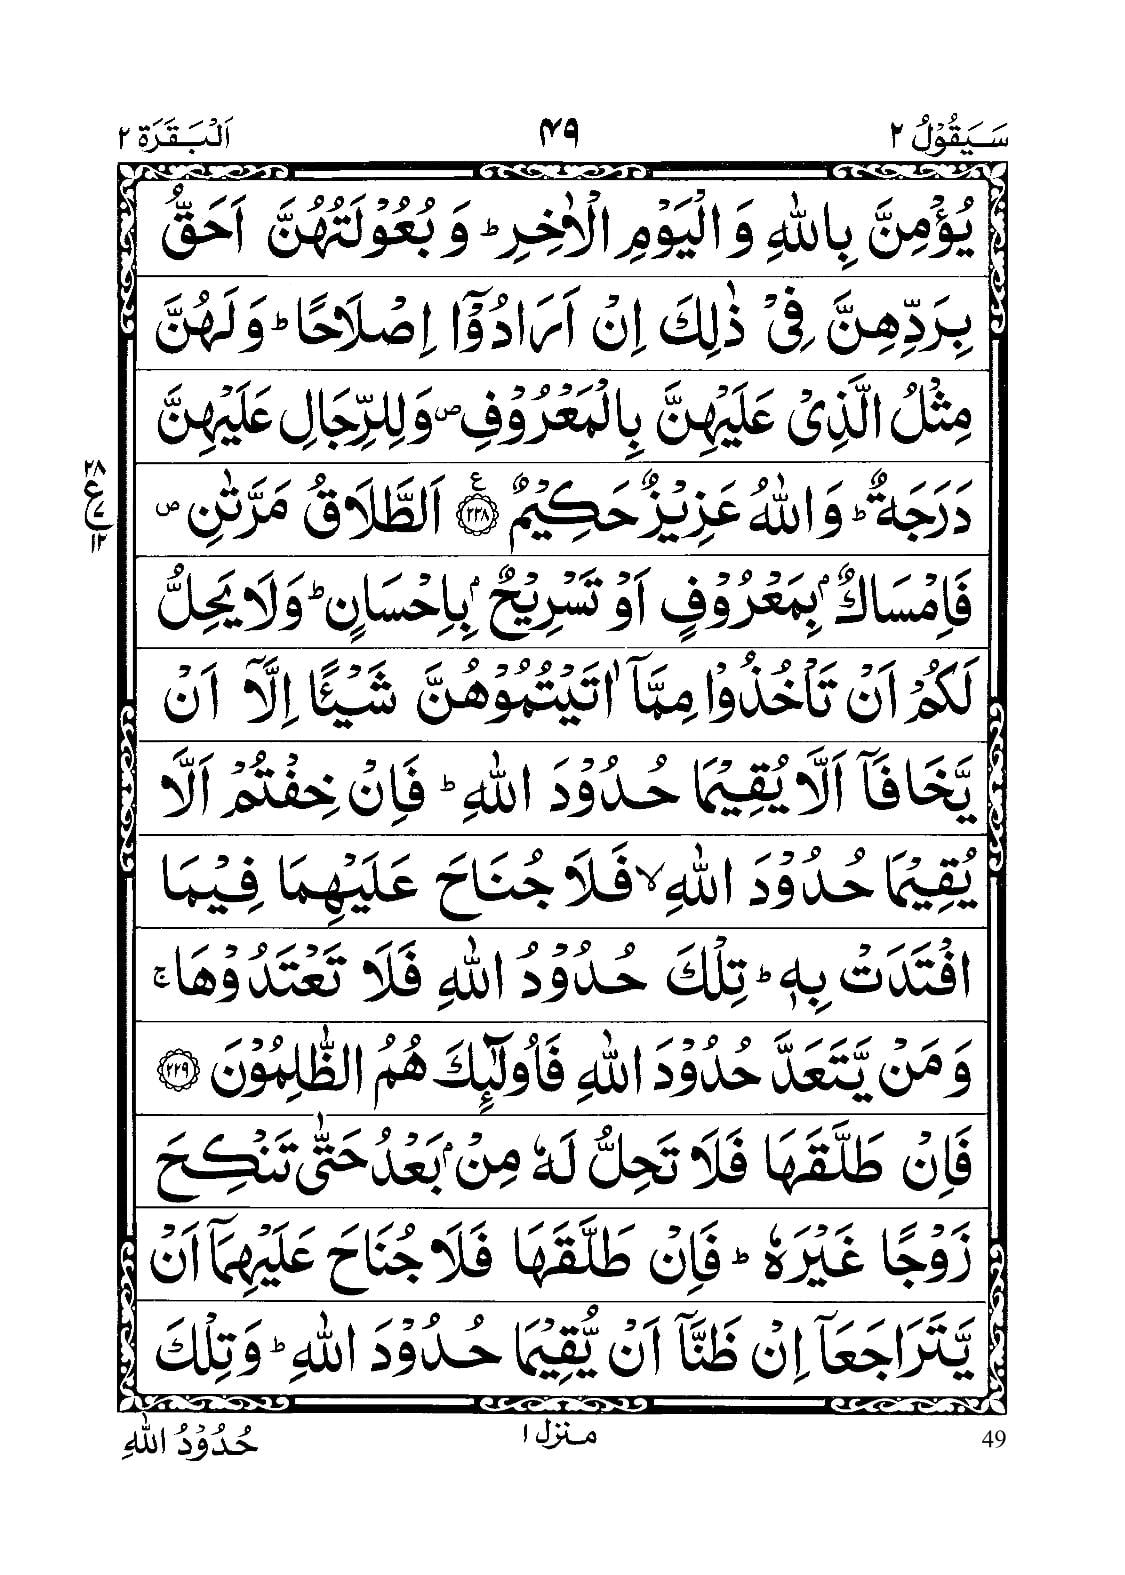 سَيَقُوْلُ ٢
٤٩
اَلْبَقَرَة ٢
يُؤْمِنَّ بِاللّٰهِ وَ الْيَوْمِ الْاٰخِرِ ؕ وَ بُعُوْلَتُهُنَّ اَحَقُّ
بِرَدِّهِنَّ فِيْ ذٰلِكَ اِنْ اَرَادُوْۤا اِصْلَاحًا ؕ وَ لَهُنَّ
مِثْلُ الَّذِيْ عَلَيْهِنَّ بِالْمَعْرُوْفِ ۪ وَلِلرِّجَالِ عَلَيْهِنَّ
دَرَجَةٌ ؕ وَ اللّٰهُ عَزِيْزٌ حَكِيْمٌ ﴿٢٢٨﴾ ع اَلطَّلَاقُ مَرَّتٰنِ ۪
٢٨
ع
٧
١٢
فَاِمْسَاكٌۢ بِمَعْرُوْفٍ اَوْ تَسْرِيْحٌۢ بِاِحْسَانٍ ؕ وَلَا يَحِلُّ
لَكُمْ اَنْ تَاْخُذُوْا مِمَّاۤ اٰتَيْتُمُوْهُنَّ شَيْـًٔا اِلَّاۤ اَنْ
يَّخَافَاۤ اَلَّا يُقِيْمَا حُدُوْدَ اللّٰهِ ؕ فَاِنْ خِفْتُمْ اَلَّا
يُقِيْمَا حُدُوْدَ اللّٰهِ ۙ فَلَا جُنَاحَ عَلَيْهِمَا فِيْمَا
افْتَدَتْ بِهٖ ؕ تِلْكَ حُدُوْدُ اللّٰهِ فَلَا تَعْتَدُوْهَا ۚ
وَ مَنْ يَّتَعَدَّ حُدُوْدَ اللّٰهِ فَاُولٰٓئِكَ هُمُ الظّٰلِمُوْنَ ﴿٢٢٩﴾
فَاِنْ طَلَّقَهَا فَلَا تَحِلُّ لَهٗ مِنْۢ بَعْدُ حَتّٰى تَنْكِحَ
زَوْجًا غَيْرَهٗ ؕ فَاِنْ طَلَّقَهَا فَلَا جُنَاحَ عَلَيْهِمَاۤ اَنْ
يَّتَرَاجَعَاۤ اِنْ ظَنَّاۤ اَنْ يُّقِيْمَا حُدُوْدَ اللّٰهِ ؕ وَ تِلْكَ
49
منزل ١
حُدُوْدُ اللّٰهِ